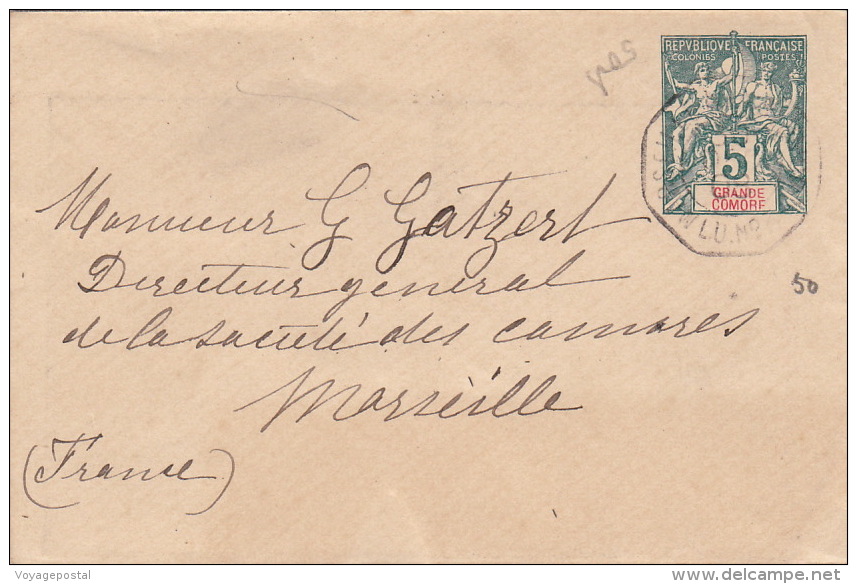 REPVBLIQUE FRANÇAISE
COLONIES POSTES
5
GRANDE
COMORE
LU. No
Monsieur G Gatzert
Directeur general
de la societé des comores
Marseille
(France)
50
Voyagepostal
delcampe.net